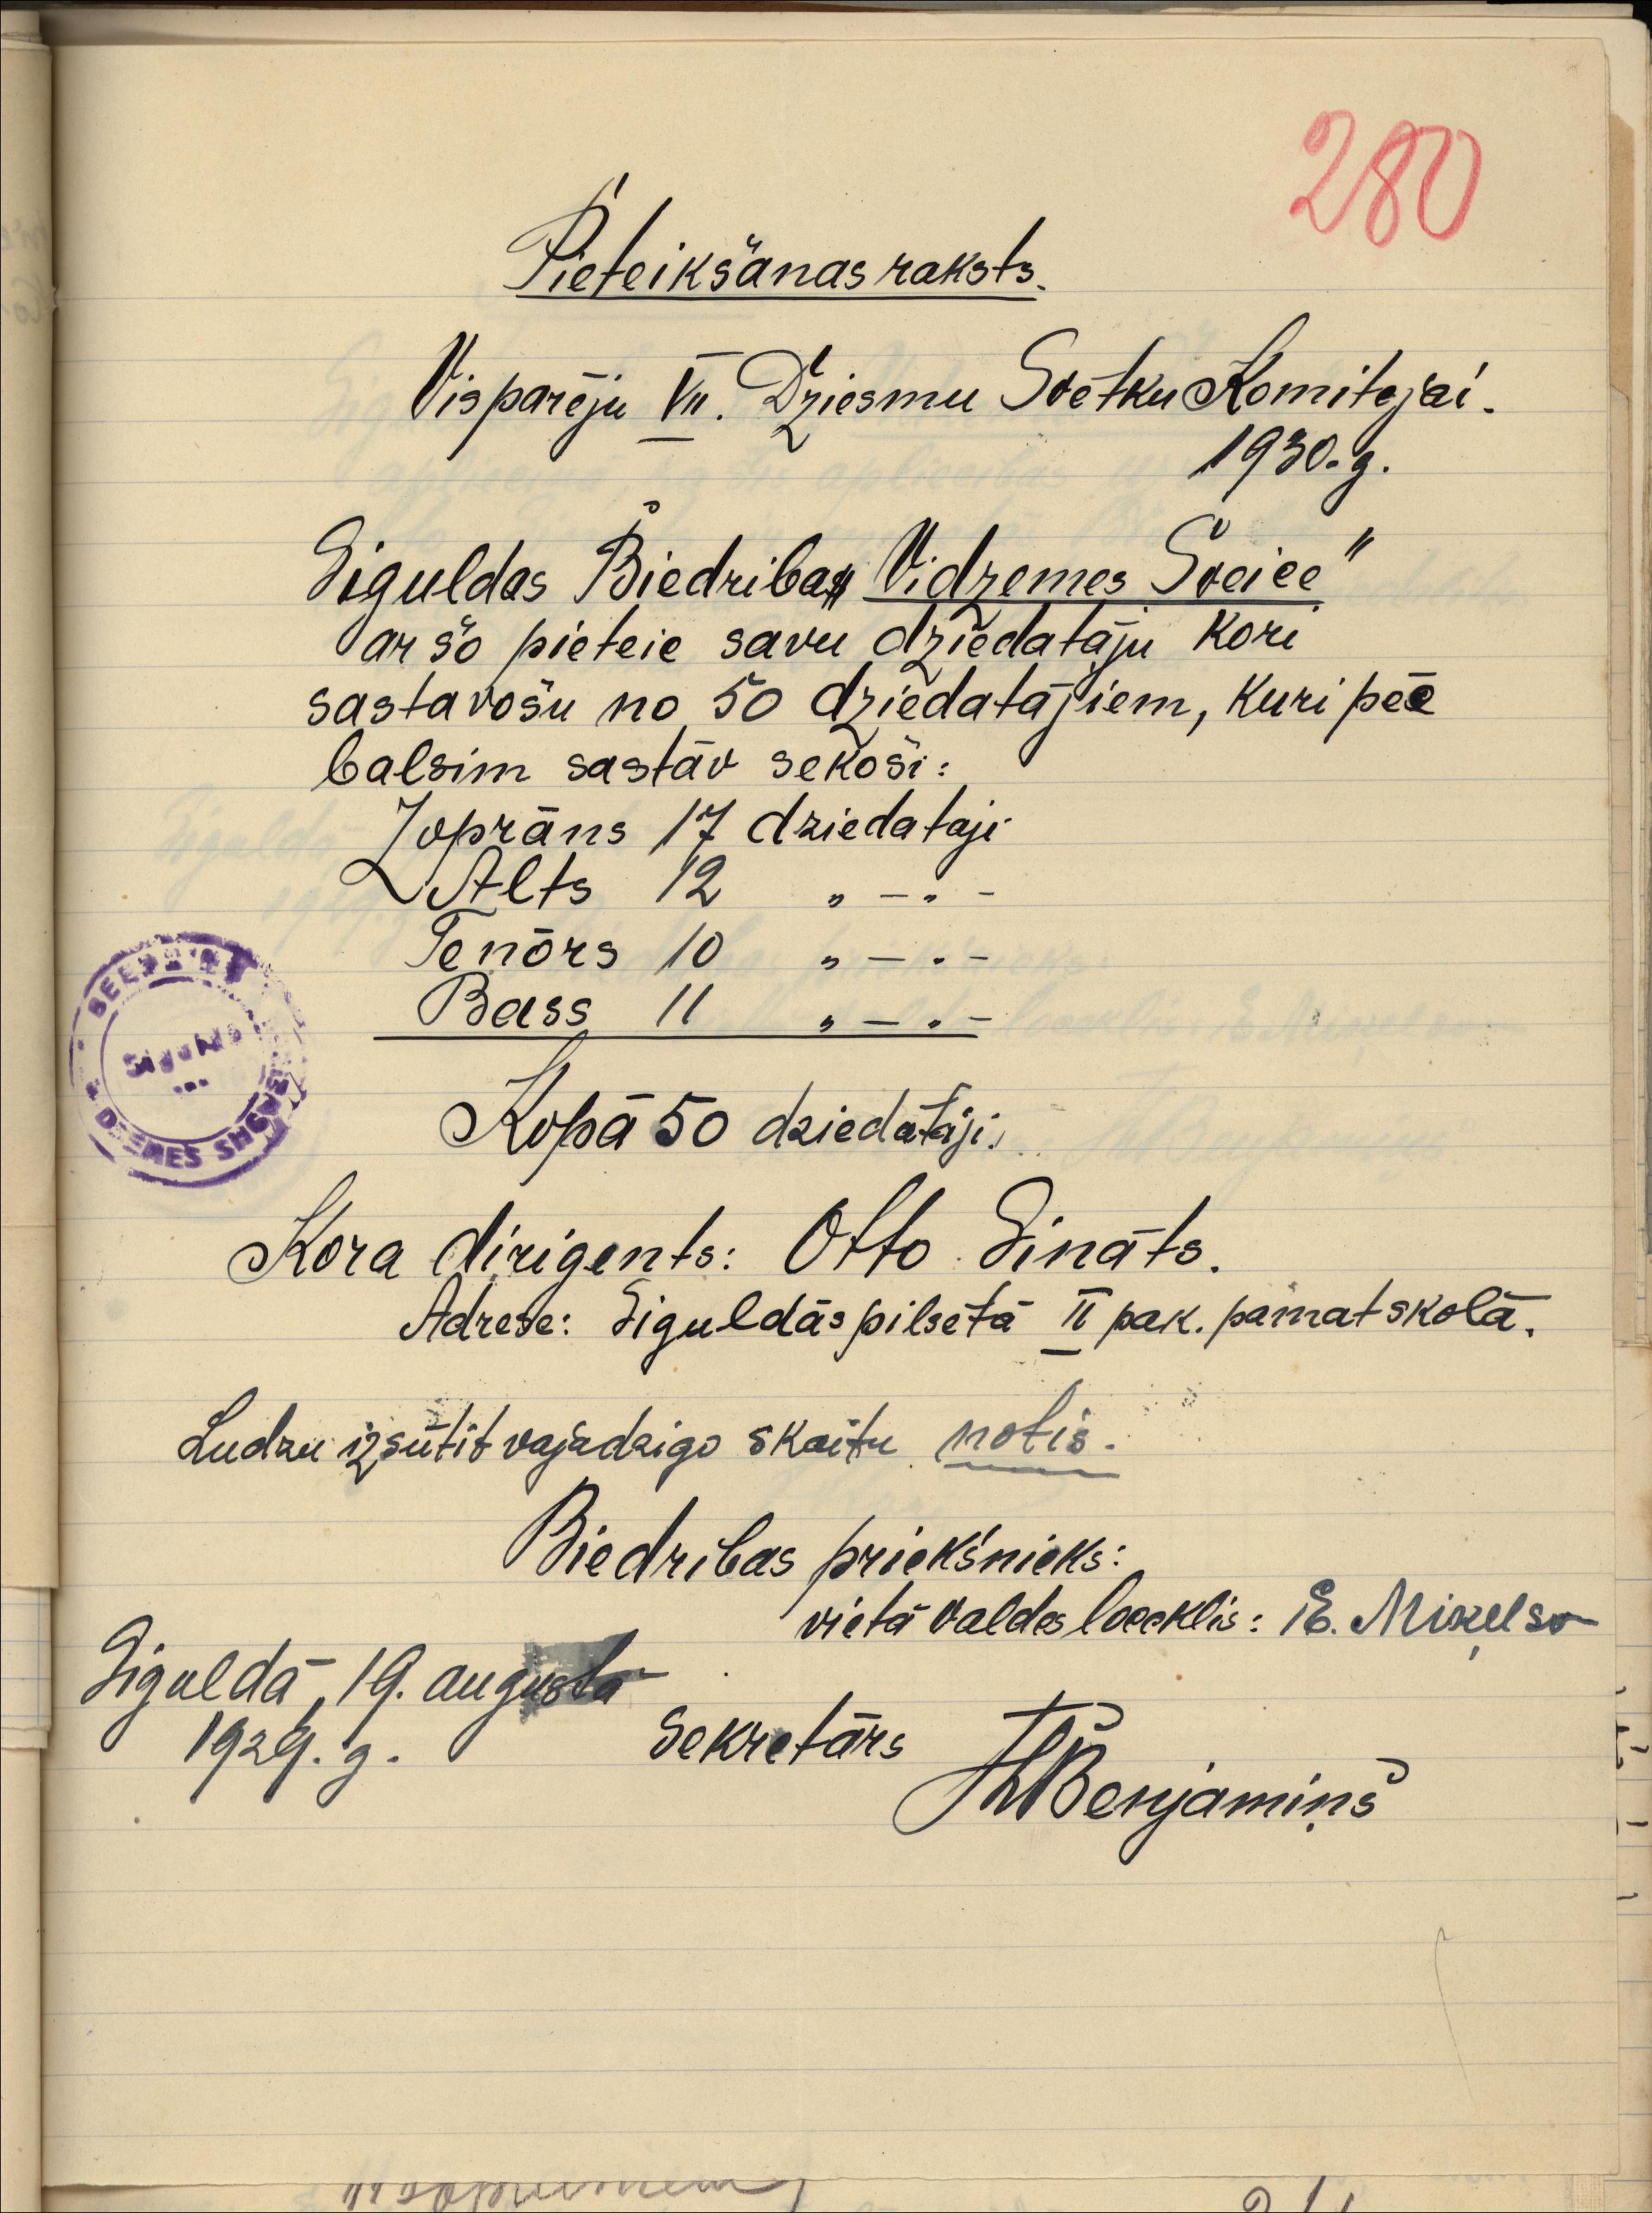 280
Pieteikšanas raksts.
Visparēju VII. Dziesmu Svētku Komitejai.
1930. g.
Siguldas Biedriba „Vidzemes Šveice"
ar šo pieteic savu dziedatāju kori
sastavošu no 50 dziedatājiem, kuri pēc
balsim sastāv sekoši:
Zoprāns 17 dziedataji
Alts 12 „ — „ —
Tenōrs 10 „ — „ —
Bass 11 „ — „ —
Kopā 50 dziedātāji.
Kora dirigents: Otto Sināts.
Adrese: Siguldās pilsētā II pak. pamatskolā.
Ludzu izsūtit vajadzigo skaitu notis.
Biedribas priekšnieks:
vietā valdes loceklis: E. Miķelso
Siguldā, 19. augustā
1929. g.
Sekretārs
Benjamiņš
Sigulda